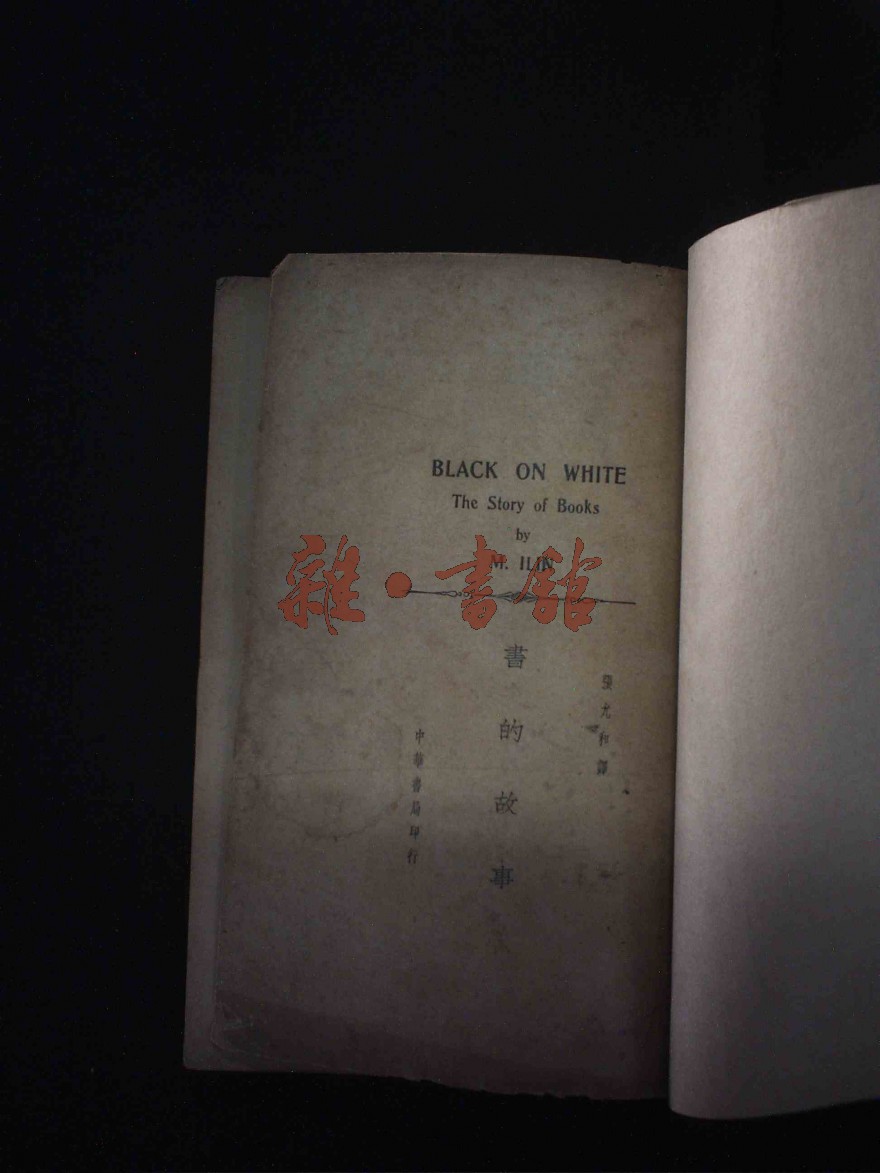 BLACK ON WHITE
The Story of Books
by
M. ILIN
雜·書館
張允和譯
書的故事
中華書局印行